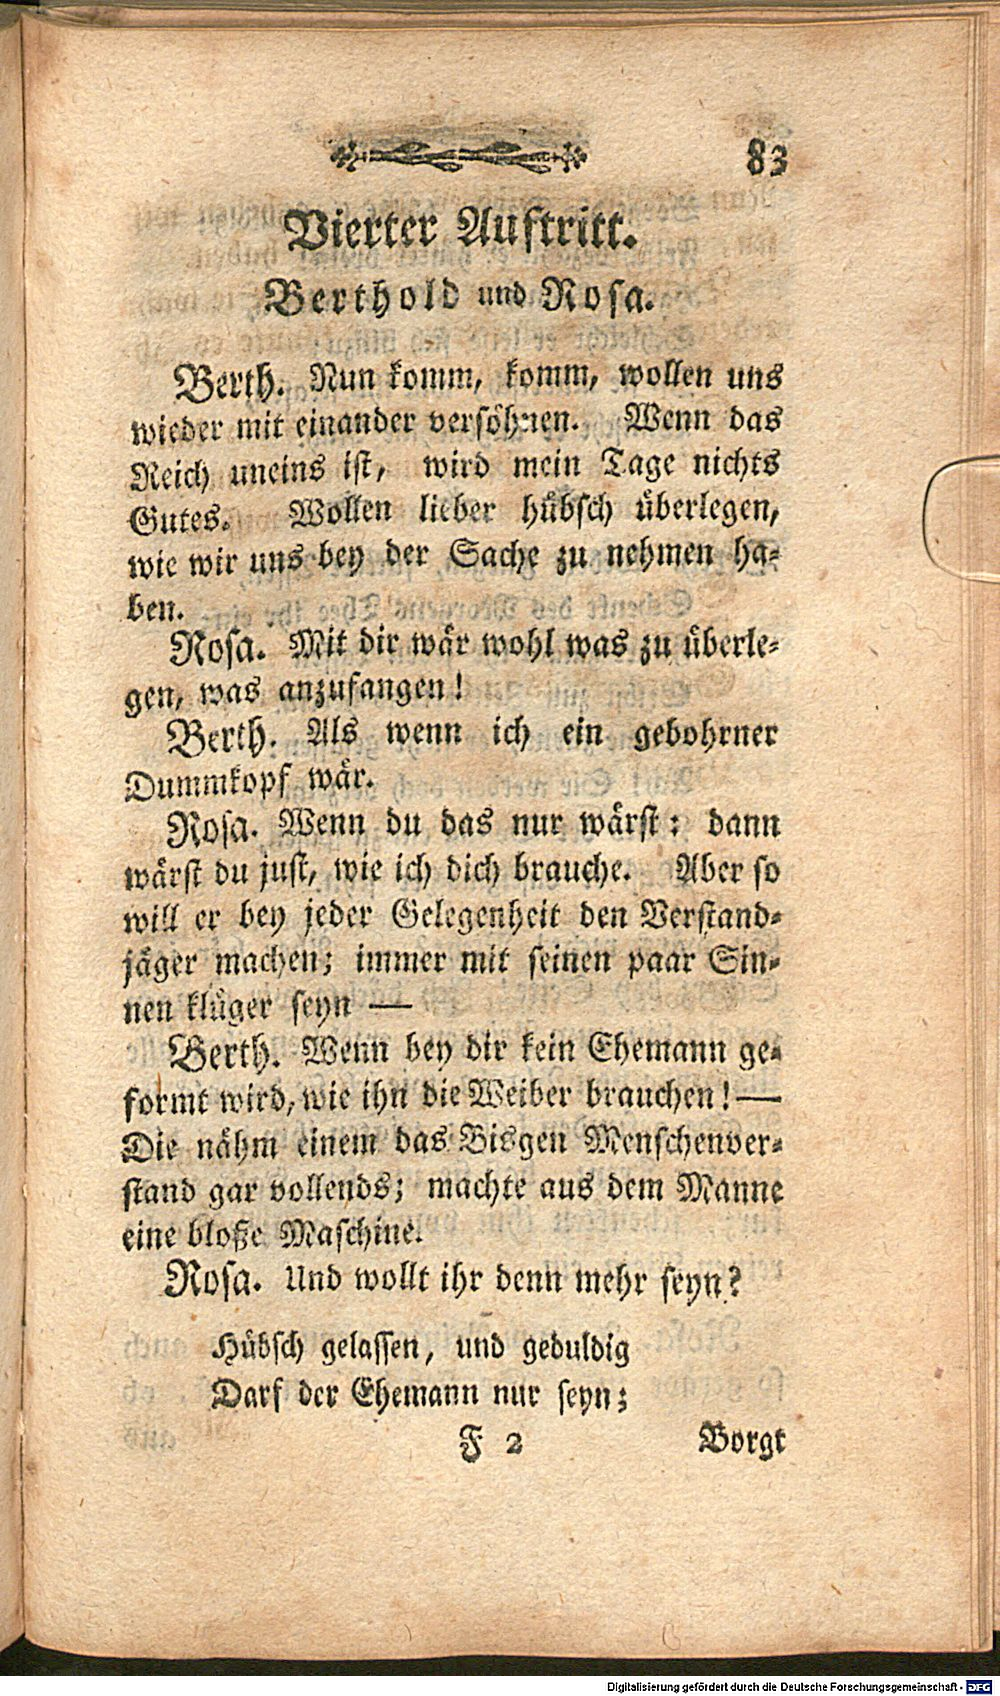 83
Vierter Auftritt.
Berthold und Rosa.
Berth. Nun komm, komm, wollen uns
wieder mit einander versöhnen. Wenn das
Reich uneins ist, wird mein Tage nichts
Gutes. Wollen lieber hübsch überlegen,
wie wir uns bey der Sache zu nehmen ha-
ben.
Rosa. Mit dir wär wohl was zu überle-
gen, was anzufangen!
Berth. Als wenn ich ein gebohrner
Dummkopf wär.
Rosa. Wenn du das nur wärst: dann
wärst du just, wie ich dich brauche. Aber so
will er bey jeder Gelegenheit den Verstand-
jäger machen; immer mit seinen paar Sin-
nen klüger seyn —
Berth. Wenn bey dir kein Ehemann ge-
formt wird, wie ihn die Weiber brauchen! —
Die nähm einem das Bisgen Menschenver-
stand gar vollends; machte aus dem Manne
eine bloße Maschine.
Rosa. Und wollt ihr denn mehr seyn?
Hübsch gelassen, und geduldig
Darf der Ehemann nur seyn;
F 2 Borgt
Digitalisierung gefördert durch die Deutsche Forschungsgemeinschaft - DFG